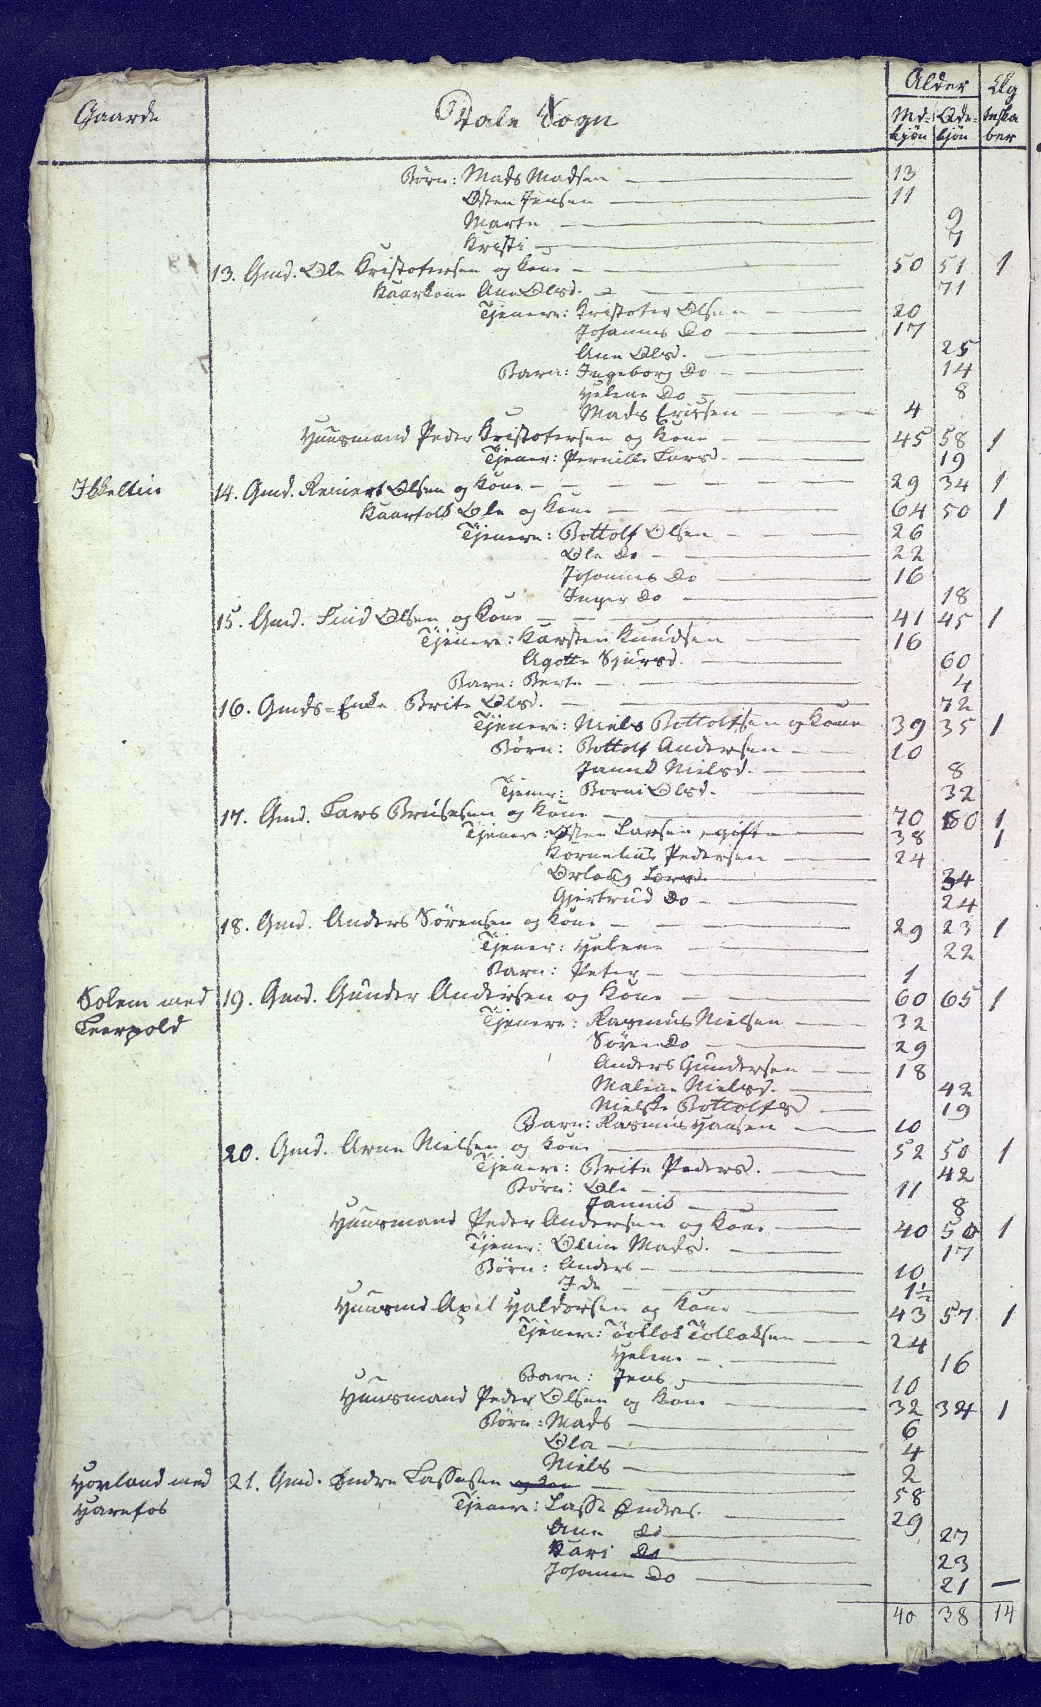 Gaarde Dale Sogn Alder Ægteskaber
Md-kjøn Qde-kjøn
Børn: Mads Madsen 13
Østen Jensen 11
Marte 9
Kristi 7
13. Gmd. Ole Kristofersen og Kone 50 51 1
Kaarkone Ane Olsd. 71
Tjenere: Kristofer Olsen 20
Johannes Do 17
Ane Olsd. 25
Barn: Ingeborg Do 14
Helene Do 8
Mads Ericsen 4
Huusmand Peder Kristofersen og Kone 45 58 1
Tjener: Pernille Larsd. 19
Ikkeltin 14. Gmd. Reinert Olsen og Kone 29 34 1
Kaarfolk Ole og Kone 64 50 1
Tjenere: Bottolf Olsen 26
Ole Do 22
Johannes Do 16
Inger Do 18
15. Gmd. Find Olsen og Kone 41 45 1
Tjenere: Karsten Knudsen 16
Agotte Sjursd. 60
Barn: Berte 4
16. Gmds-Enke Brite Olsd. 72
Tjenere: Niels Bottolfsen og Kone 39 35 1
Børn: Bottolf Andersen 10
Janni Nielsd. 8
Tjener: Borni Olsd. 32
17. Gmd. Lars Brusesen og Kone 70 60 1
Tjenere: Østen Larsen, gift 38 1
Kornelius Pedersen 24
Orlaug Larsd. 34
Gjertrud Do 24
18. Gmd. Anders Sørensen og Kone 29 23 1
Tjener: Helene 22
Barn: Peter 1
Solem med 19. Gmd. Gunder Andersen og Kone 60 65 1
Leerpold Tjenere: Rasmus Nielsen 32
Søren Do 29
Anders Gundersen 18
Malene Nielsd. 42
Nielske Bottolfsd 19
Barn: Rasmus Hansen 10
20. Gmd. Arne Nielsen og Kone 52 50 1
Tjenere: Brite Pedersd. 42
Børn: Ole 11
Janni 8
Huusmand Peder Andersen og Kone 40 50 1
Tjener: Oline Madsd. 17
Børn: Anders 10
Ide 1½
Huusmd Axel Haldorsen og Kone 43 57 1
Tjenere: Tollok Tolloksen 24
Helene 16
Barn: Jens 10
Huusmand Peder Olsen og Kone 32 34 1
Børn: Mads 6
Ola 4
Niels 2
Hovland med 21. Gmd. Endre Lassesen og Kone 58
Harefos Tjenere: Lasse Endres. 29
Ane Do 27
Kari Do 23
Johanne Do 21 —
40 38 14